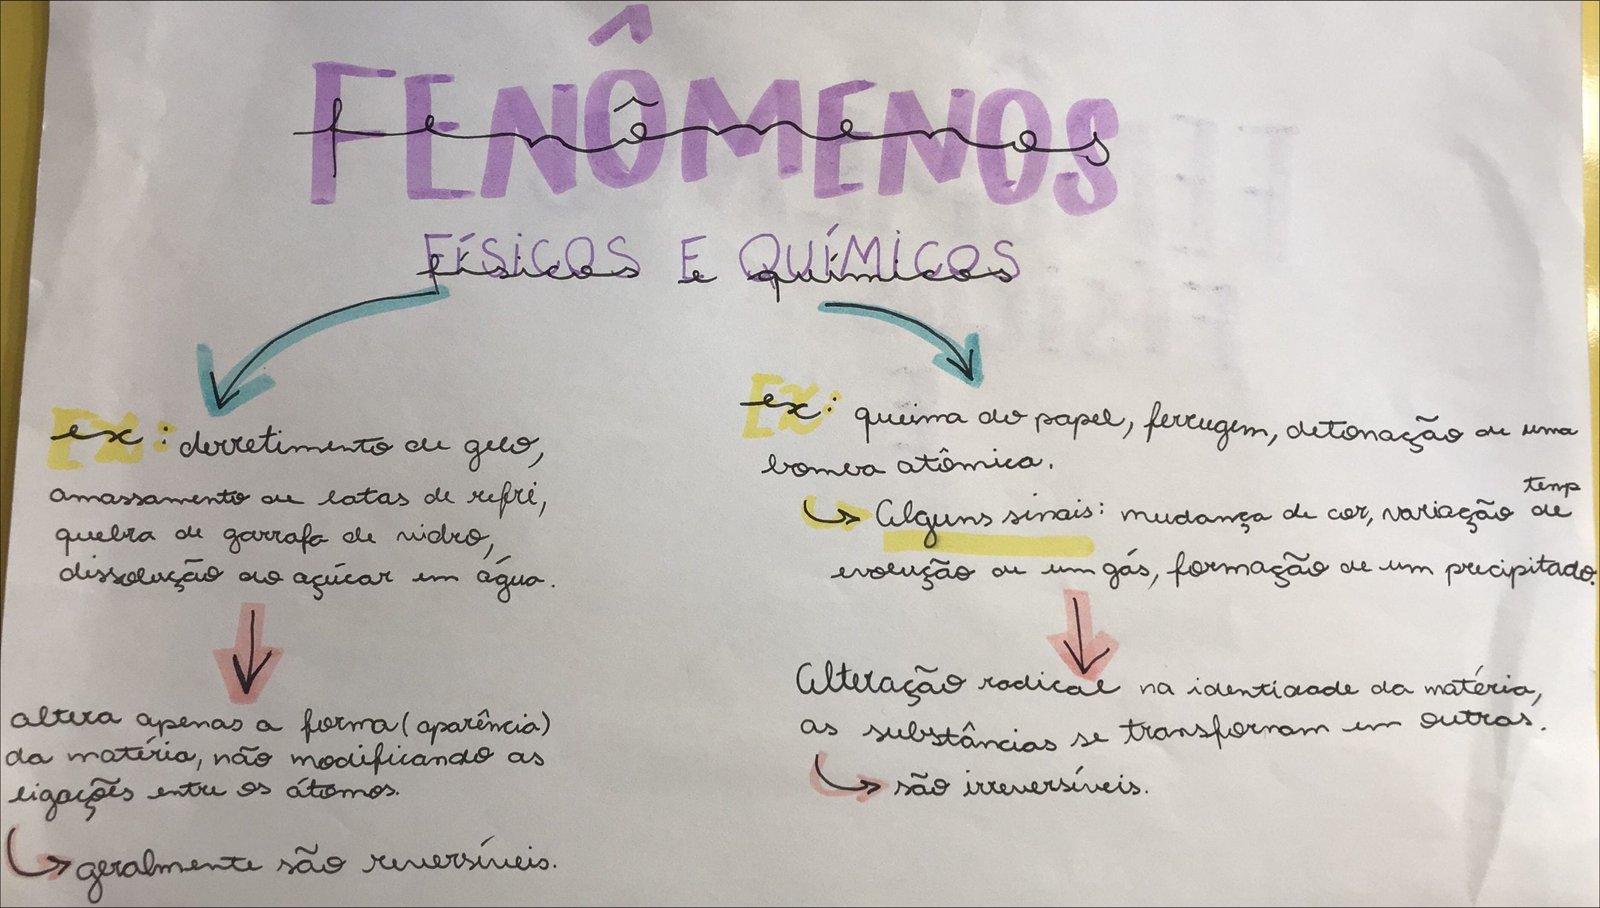 FENÔMENOS
fenômenos
FÍSICOS E QUÍMICOS
físicos e químicos
ex: derretimento de gelo,
amassamento de latas de refri,
quebra de garrafa de vidro,
dissolução do açúcar em água.
altera apenas a forma (aparência)
da matéria, não modificando as
ligações entre os átomos.
geralmente são reversíveis.
Ex:
ex: queima do papel, ferrugem, detonação de uma
bomba atômica.
Alguns sinais: mudança de cor, variação de temp
evolução de um gás, formação de um precipitado.
Alteração radical na identidade da matéria,
as substâncias se transformam em outras.
são irreversíveis.